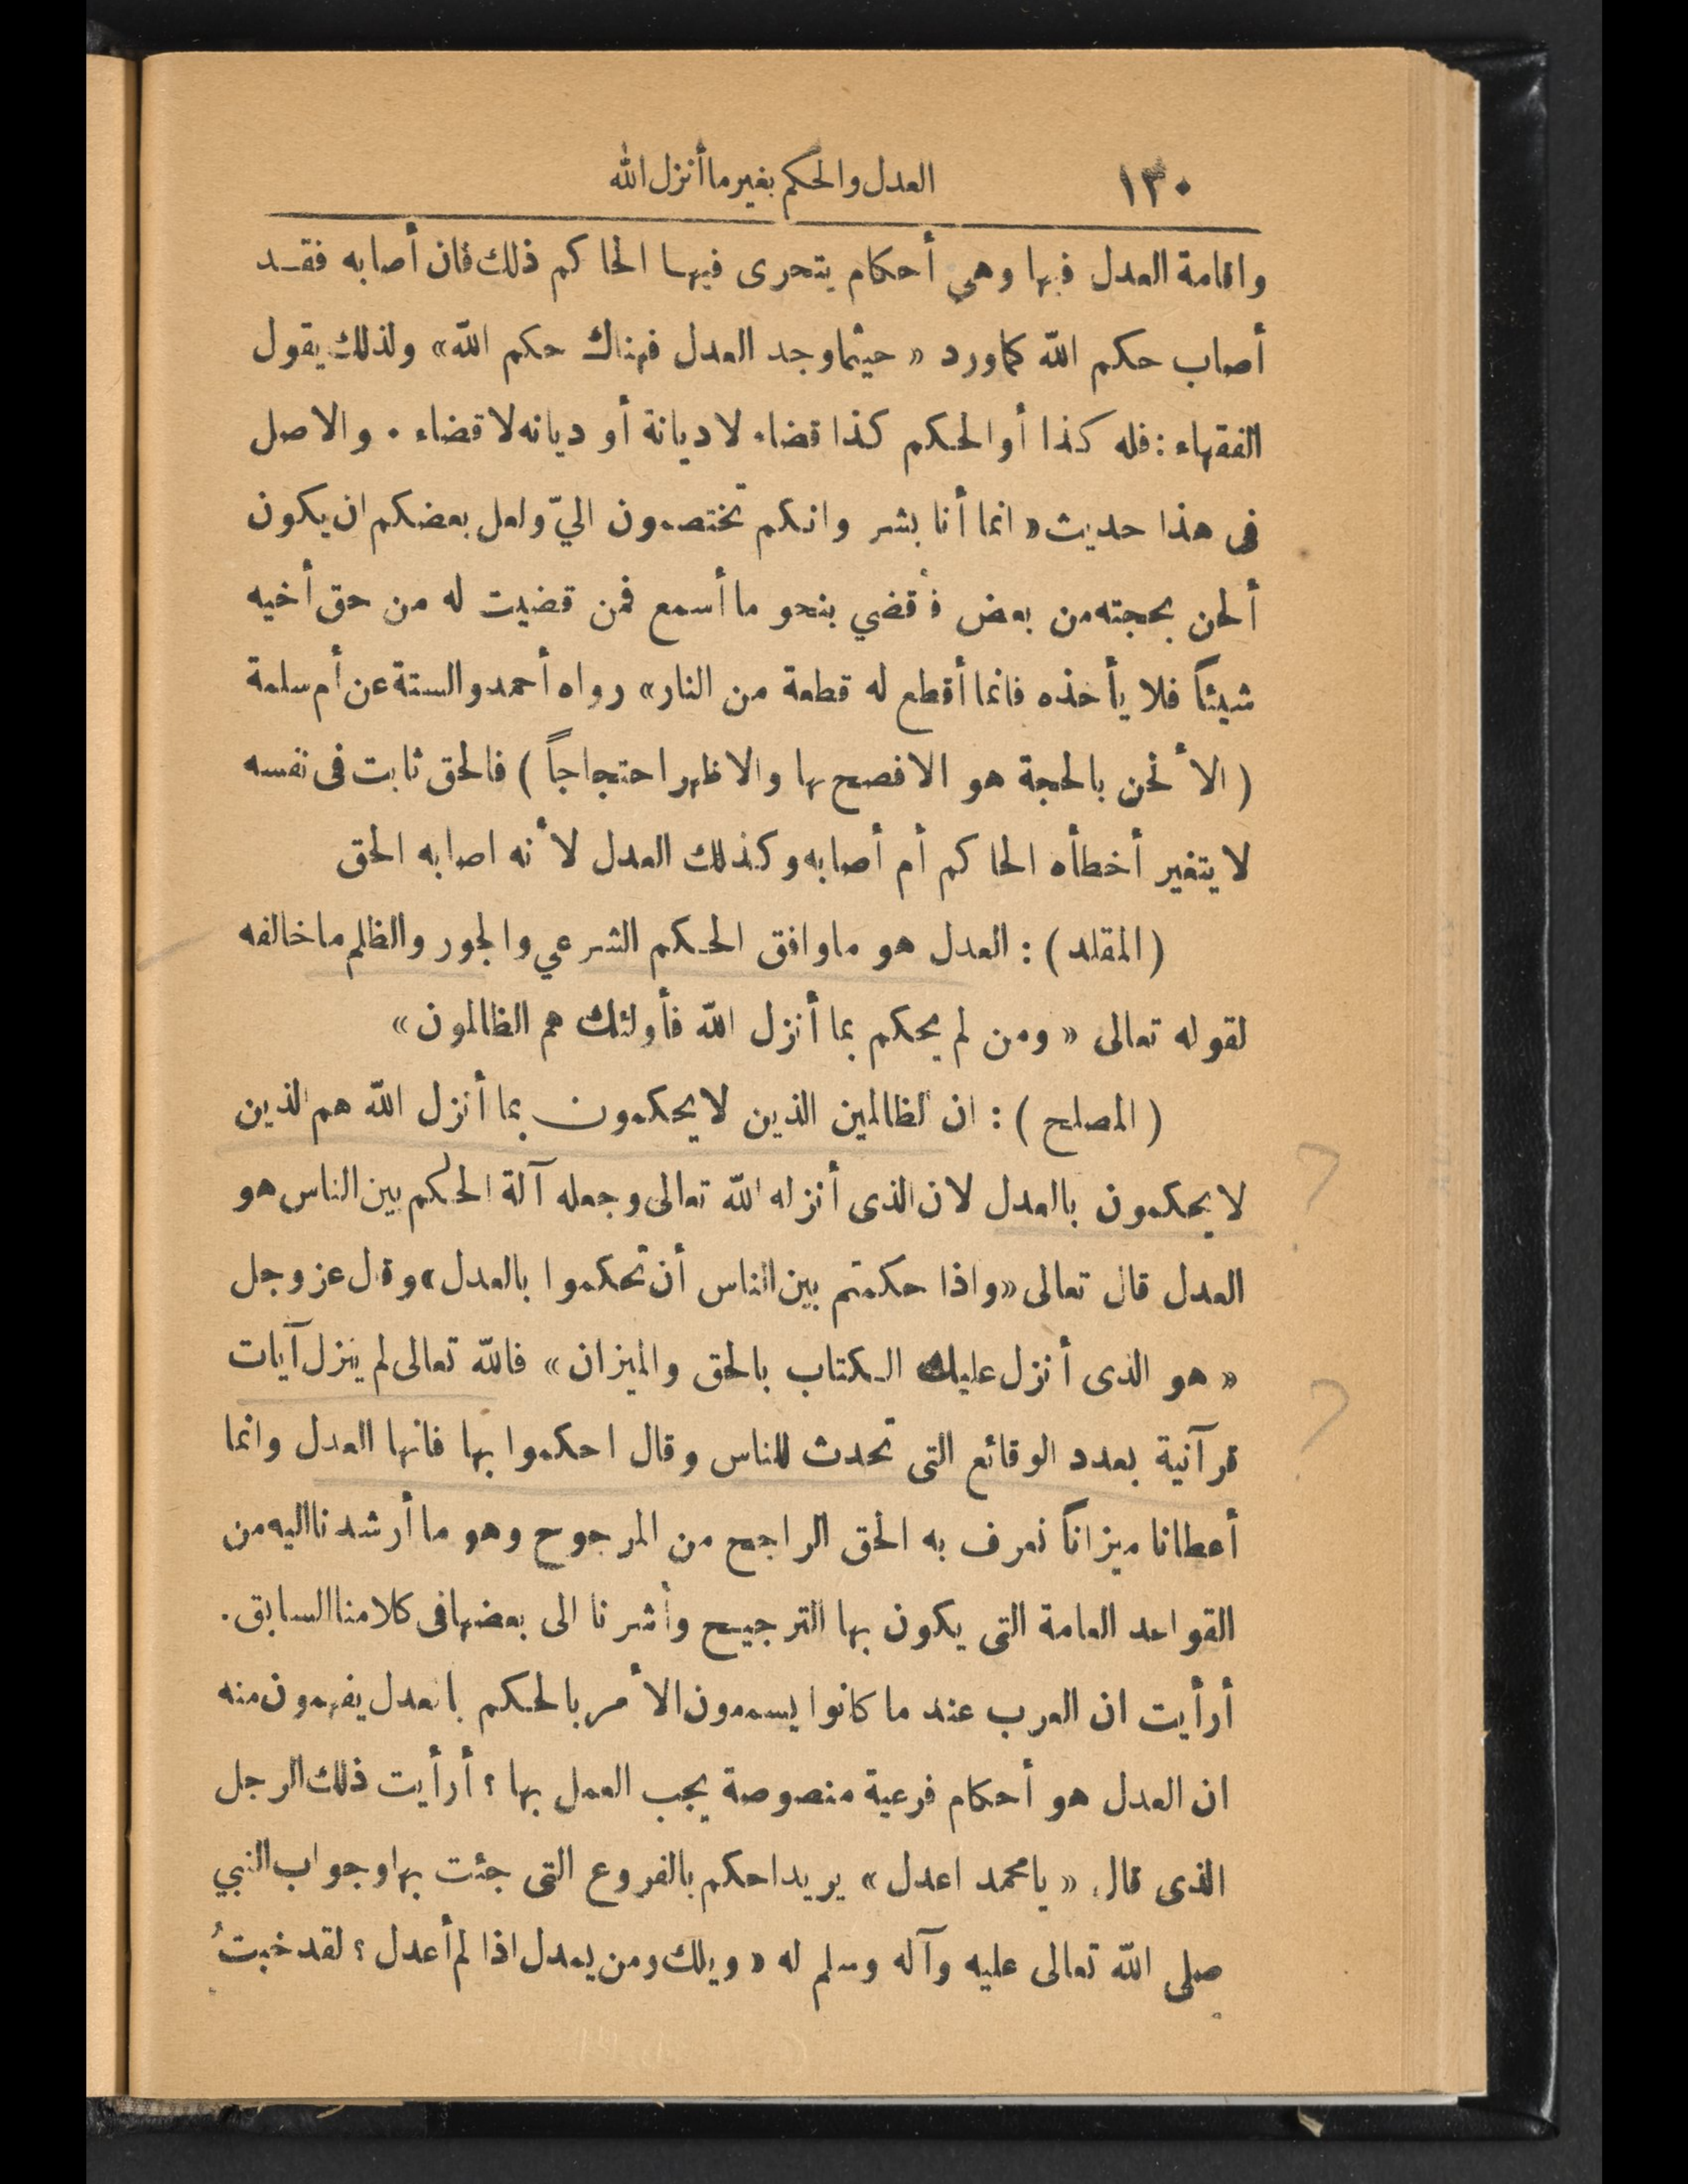 ١٣٠ العدل والحكم بغير ما أنزل الله
واقامة العدل فيها وهي أحكام يتحرى فيها الحاكم ذلك فان أصابه فقد
أصاب حكم الله كما ورد « حيثما وجد العدل فهناك حكم الله » ولذلك يقول
الفقهاء : فله كذا أو الحكم كذا قضاء لا ديانة أو ديانه لا قضاء . والاصل
فى هذا حديث « انما أنا بشر وانكم تختصمون اليّ ولعل بعضكم ان يكون
ألحن بحجته من بعض فأقضي بنحو ما أسمع فمن قضيت له من حق أخيه
شيئاً فلا يأخذه فانما أقطع له قطعة من النار » رواه أحمد والستة عن أم سلمة
( الألحن بالحجة هو الافصح بها والاظهر احتجاجاً ) فالحق ثابت فى نفسه
لا يتغير أخطأه الحاكم أم أصابه وكذلك العدل لأنه اصابه الحق
( المقلد ) : العدل هو ما وافق الحكم الشرعي والجور والظلم ما خالفه
لقوله تعالى « ومن لم يحكم بما أنزل الله فأولئك هم الظالمون »
( المصلح ) : ان الظالمين الذين لا يحكمون بما أنزل الله هم الذين
لا يحكمون بالعدل لان الذى أنزله الله تعالى وجعله آلة الحكم بين الناس هو
العدل قال تعالى « واذا حكمتم بين الناس أن تحكموا بالعدل » وقال عز وجل
« هو الذى أنزل عليك الكتاب بالحق والميزان » فالله تعالى لم ينزل آيات
قرآنية بعدد الوقائع التى تحدث للناس وقال احكموا بها فانها العدل وانما
أعطانا ميزاناً نعرف به الحق الراجح من المرجوح وهو ما أرشدنا اليه من
القواعد العامة التى يكون بها الترجيح وأشرنا الى بعضها فى كلامنا السابق .
أرأيت ان العرب عند ما كانوا يسمعون الأمر بالحكم بالعدل يفهمون منه
ان العدل هو أحكام فرعية منصوصة يجب العمل بها ؟ أرأيت ذلك الرجل
الذى قال « يا محمد اعدل » يريد احكم بالفروع التى جئت بها وجواب النبي
صلى الله تعالى عليه وآله وسلم له « ويلك ومن يعدل اذا لم أعدل ؟ لقد خبتُ